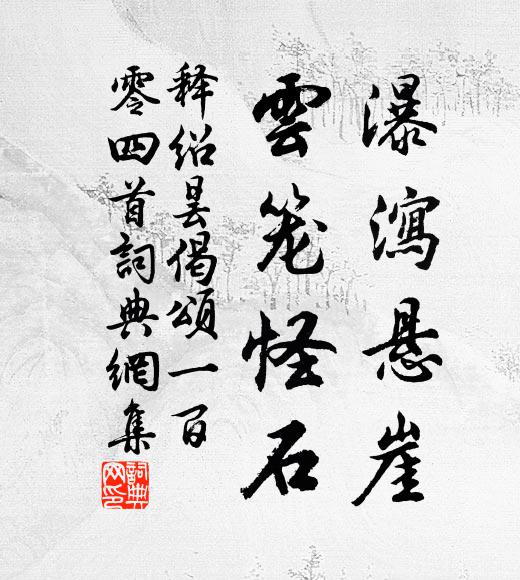 瀑瀉悬崖
雲笼怪石
释绍昙偈頌一百
零四首詞典網集
詞典网印